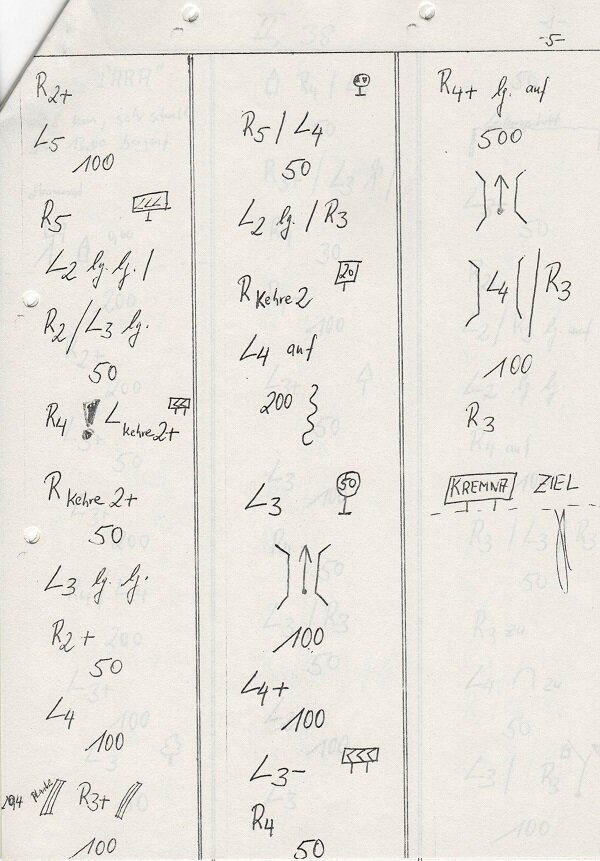 -5-
R2+
L5
100
R5
L2 lg. lg. /
R2/L3 lg.
50
R4 ! LKehre2+
RKehre2+
50
L3 lg. lg.
R2+
50
L4
100
R3+
100
R5/L4
50
L2 lg. / R3
RKehre2 20
L4 auf
200
L3 50
100
L4+
100
L3-
R4
50
R4+ lg. auf
500
L4 / R3
100
R3
KREMNA ZIEL